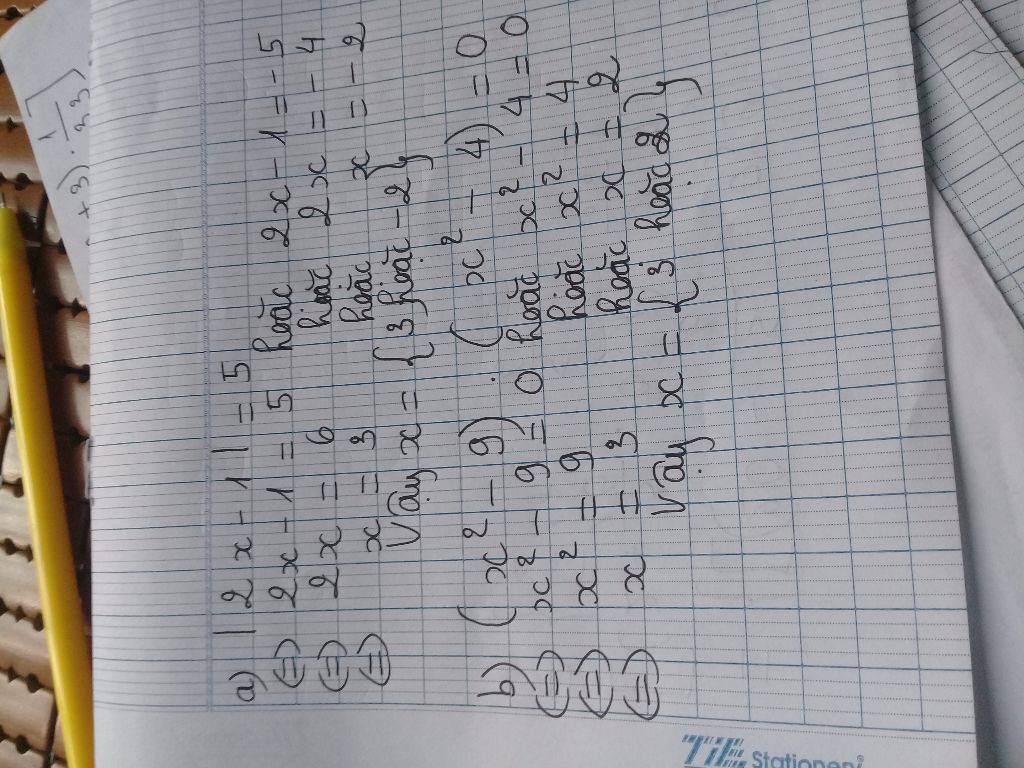 a) |2x - 1| = 5
(=) 2x - 1 = 5 hoặc 2x - 1 = - 5
(=) 2x = 6 hoặc 2x = - 4
(=) x = 3 hoặc x = - 2
Vậy x = {3 hoặc -2}
b) (x² - 9) . (x² - 4) = 0
(=) x² - 9 = 0 hoặc x² - 4 = 0
(=) x² = 9 hoặc x² = 4
(=) x = 3 hoặc x = 2
Vậy x = {3 hoặc 2}
+ 3) .
TiE Stationeri